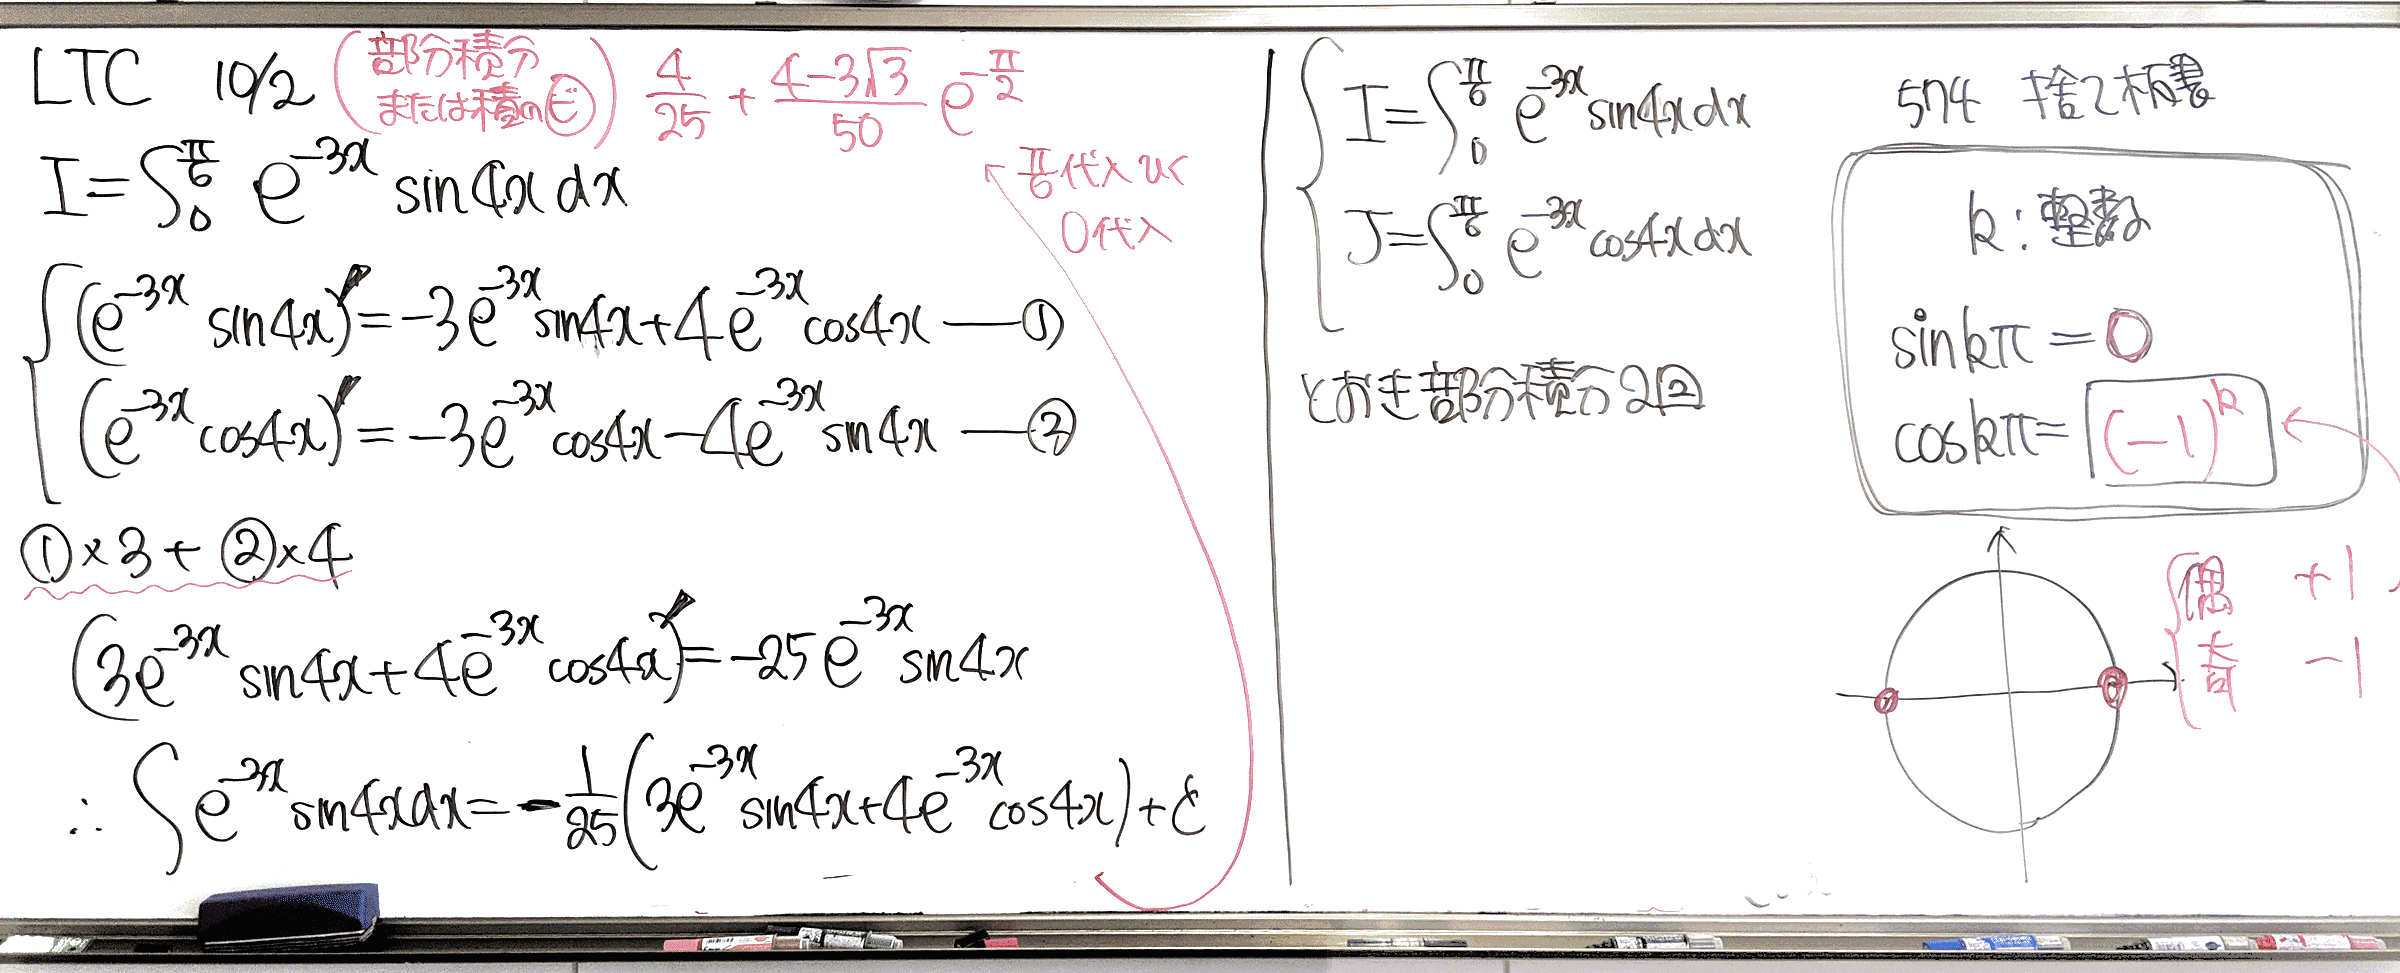 LTC 10/2 (部分積分 または積の微) 4/25 + (4-3√3)/50 e^{-π/2}
I=∫_0^{π/6} e^{-3x} sin4x dx
π/6代入 ひく
0代入
(e^{-3x} sin4x)'=-3e^{-3x}sin4x+4e^{-3x}cos4x —①
(e^{-3x}cos4x)'=-3e^{-3x}cos4x-4e^{-3x}sin4x —②
①×3+②×4
(3e^{-3x}sin4x+4e^{-3x}cos4x)'=-25e^{-3x}sin4x
∴ ∫e^{-3x}sin4xdx=-1/25(3e^{-3x}sin4x+4e^{-3x}cos4x)+C
I=∫_0^{π/6} e^{-3x}sin4xdx
J=∫_0^{π/6} e^{-3x}cos4xdx
とおき部分積分2回
574 捨て板書
k:整数
sinkπ=0
coskπ=(-1)^k
偶 +1
奇 -1